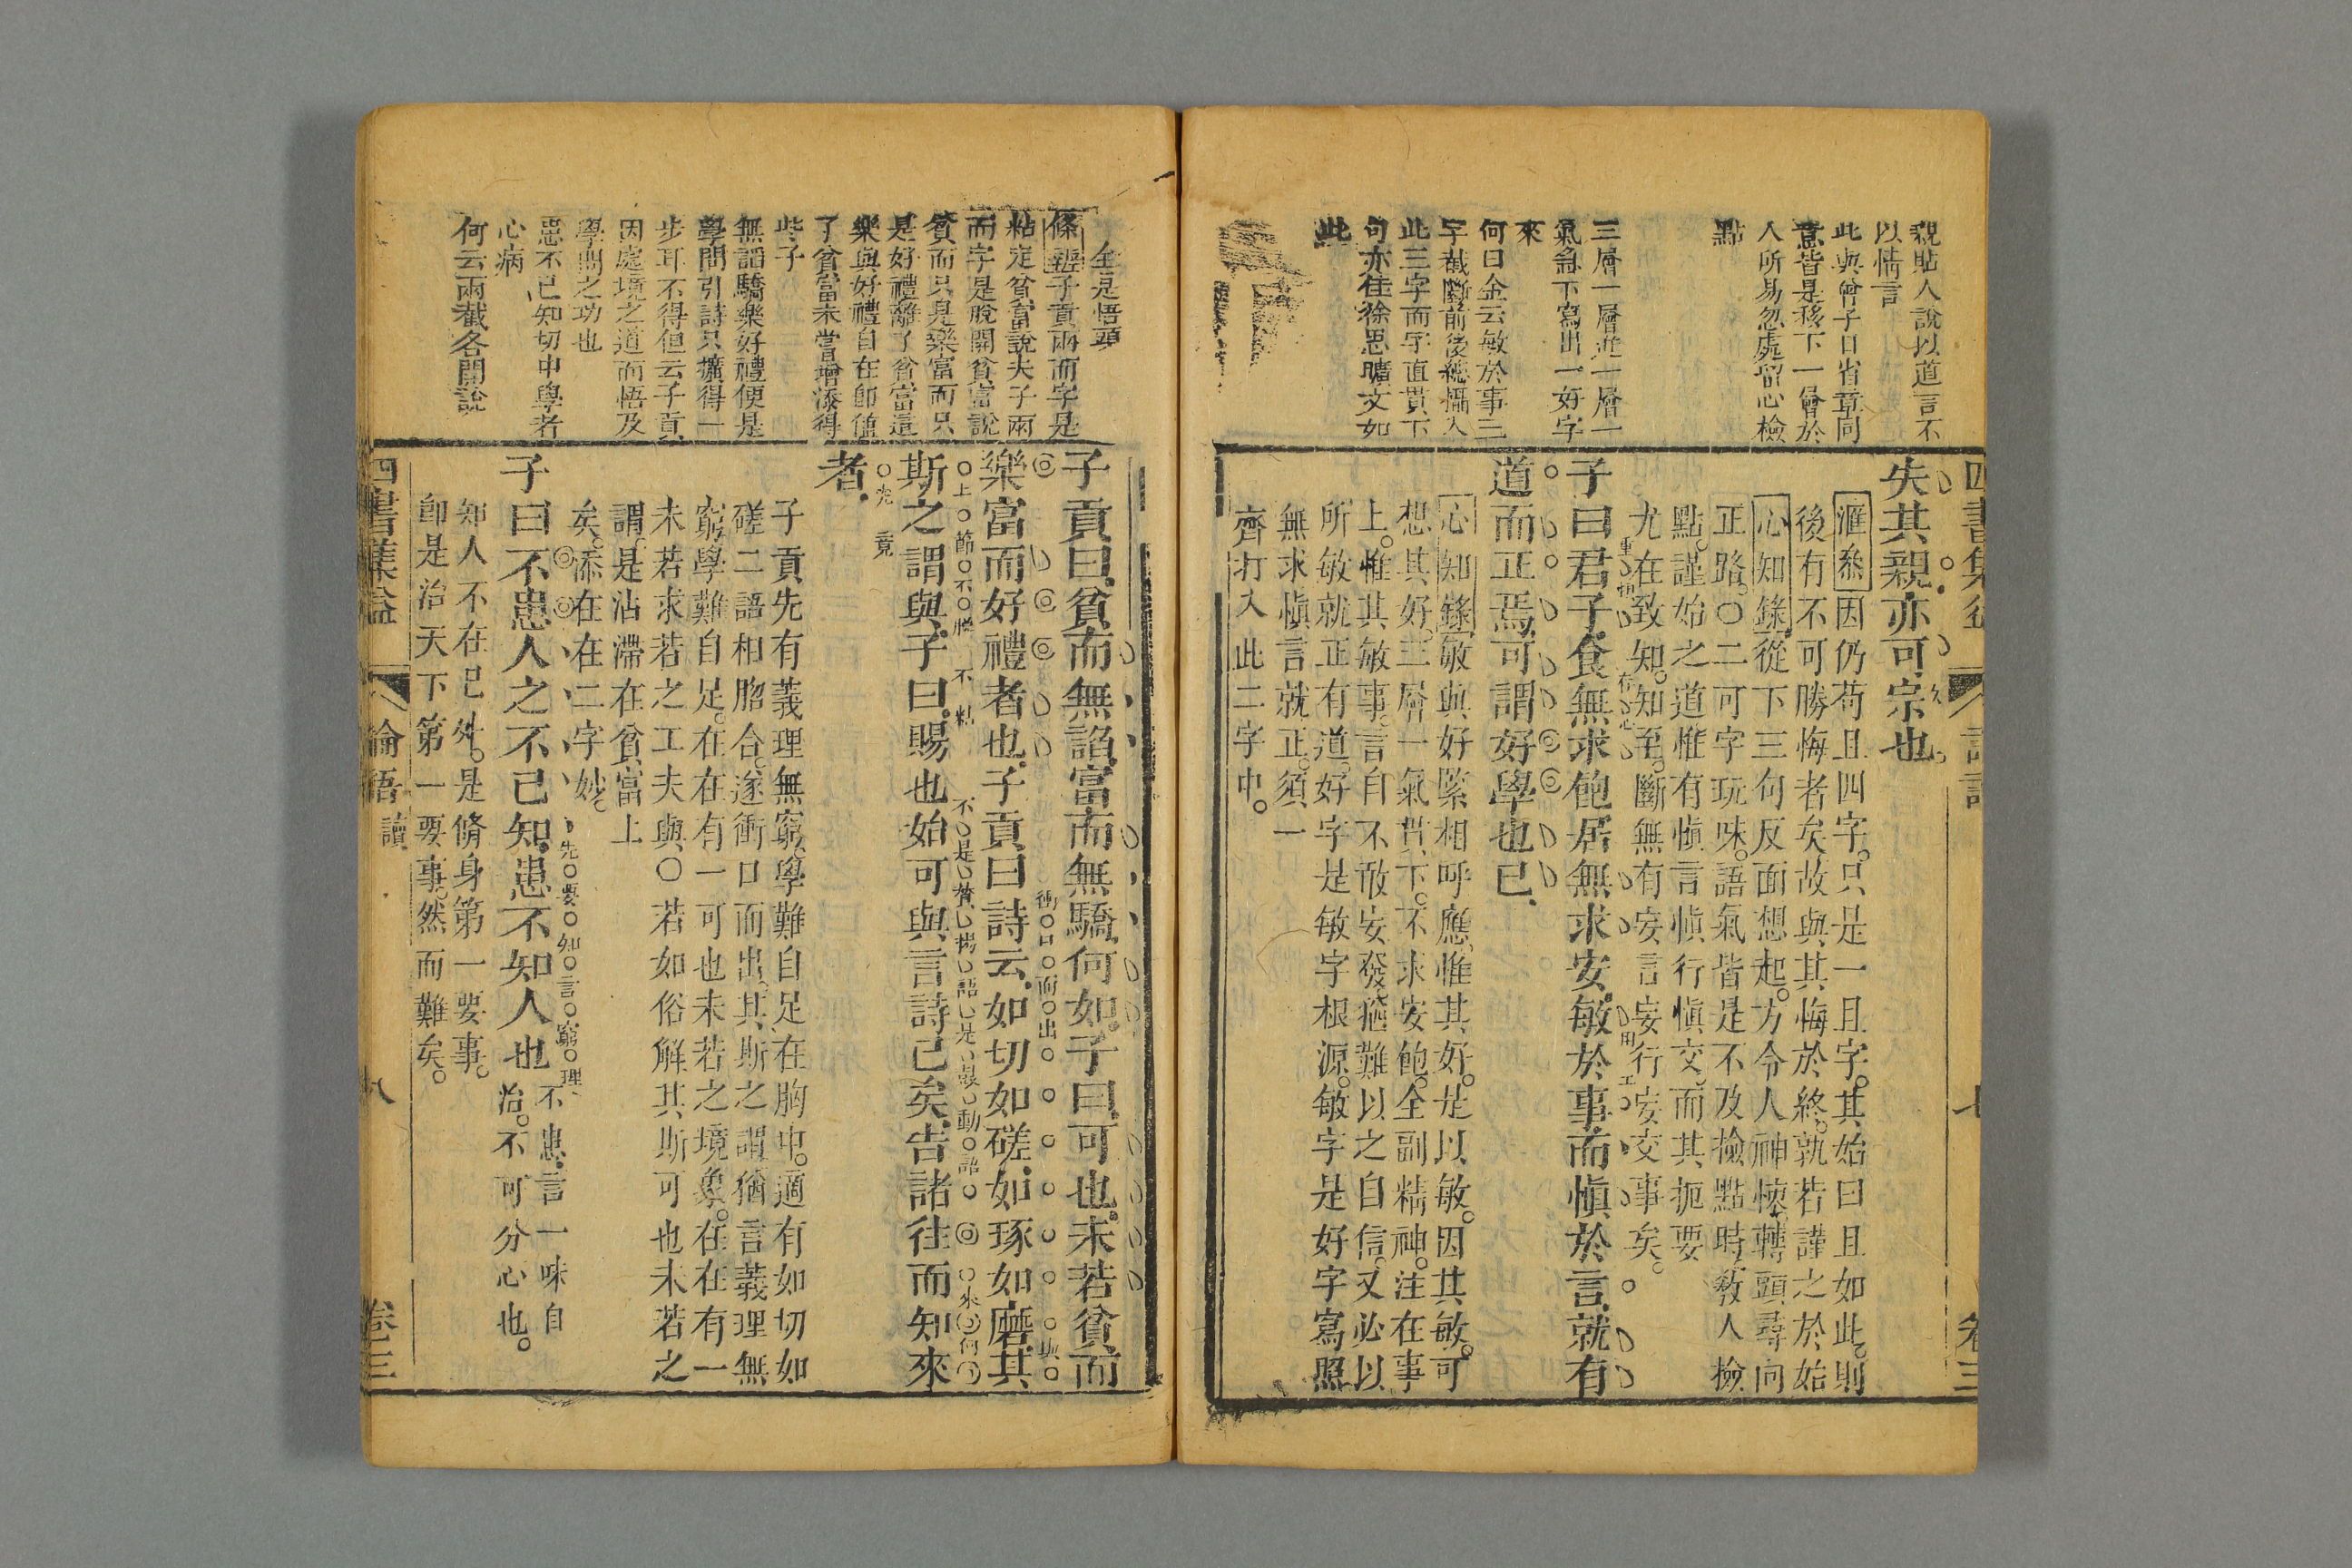 親貼人說以道言不
以情言
此與曾子日省章同
意皆是移下一層於
人所易忽處留心檢
點
三層一層進一層一
氣急下寫出一好字
來
何曰金云敏於事三
字截斷前後總攝入
此三字而字直貫下
句亦佳徐思曠文如
此
四書集益
論語
七
卷三
失其親亦可宗也
滙叅因仍苟且四字只是一且字其始曰且如此則
後有不可勝悔者矣故與其悔於終孰若謹之於始
心知錄從下三句反面想起方令人神悚轉頭尋向
正路○二可字玩味語氣皆是不及撿點時敎人撿
點謹始之道惟有愼言愼行愼交而其扼要
尤在致知知至斷無有妄言妄行妄交事矣
子曰君子食無求飽居無求安敏於事而愼於言就有
道而正焉可謂好學也已
心知錄敏與好緊相呼應惟其好是以敏因其敏可
想其好三層一氣貫下不求安飽全副精神注在事
上惟其敏事言自不敢安發猶難以之自信又必以
所敏就正有道好字是敏字根源敏字是好字寫照
無求愼言就正須一
齊打入此二字中
全是悟頭
條辨子貢兩而字是
粘定貧富說夫子兩
而字是脫開貧富說
貧而只見樂富而只
是好禮離了貧富這
樂與好禮自在卽値
了貧富未嘗增添得
些子
無諂驕樂好禮便是
學問引詩只擴得一
步耳不得但云子貢
因處境之道而悟及
學問之功也
患不已知切中學者
心病
何云兩截各開說
子貢曰貧而無諂富而無驕何如子曰可也未若貧而
衝口而出
樂富而好禮者也子貢曰詩云如切如磋如琢如磨其
上節不 不粘
斯之謂與子曰賜也始可與言詩已矣告諸往而知來
者
子貢先有義理無窮學難自足在胸中適有如切如
磋二語相脗合遂衝口而出其斯之謂猶言義理無
窮學難自足在在有一可也未若之境象在在有一
未若求若之工夫與○若如俗解其斯可也未若之
謂是沾滯在貧富上
矣添在在二字妙
先要知言窮理
子曰不患人之不己知患不知人也 不患言一味自
治不可分心也
知人不在己外是脩身第一要事
卽是治天下第一要事然而難矣
四書集益
論語
讀
八
卷三